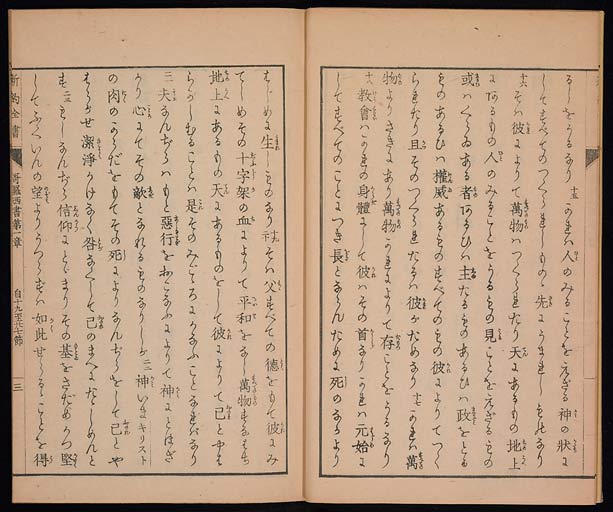 るしをうるなり 十五 これは人のみることをえざる神の狀に
してすべてのつくられしものゝ先にうまれしものなり
十六 そは彼によりて萬物はつくられたり天にあるもの地上
にあるもの人のみることをうるもの見ることをえざるもの
或ハくらゐある者あるひハ主たるものあるひハ政をとる
ものあるひハ權威あるものすべてのもの彼によりてつく
られたり且そのつくられたるハ彼がためなり 十七 これは萬
物よりさきにあり萬物これによりて存ことをうるなり
十八 教會はこれの身體にして彼はその首なりこれは元始に
してすべてのことにつき長とならんために死のなかより
はじめに生しものなり 十九 そは父すべての徳をもて彼にみ
てしめその十字架の血によりて平和をなし萬物すなはち
地上にあるもの天にあるものをして彼によりて己とやは
らがしむることは是そのみこゝろにかなふことなればなり
二一 夫なんぢらはもと惡行をおこなふによりて神にとほざ
かり心にてその敵となれるものなりしが 二二 神いまキリスト
の肉のからだをもてその死によりなんぢらをして己とや
はらがせ潔淨かけなく咎なくして己のまへにたゝしめんと
す 二三 もしなんぢら信仰にとゞまりその基をさだめかつ堅
してふくいんの望よりうつらずは如此せらるゝことを得
新約全書
哥羅西書第一章
自十九至廿七節
三